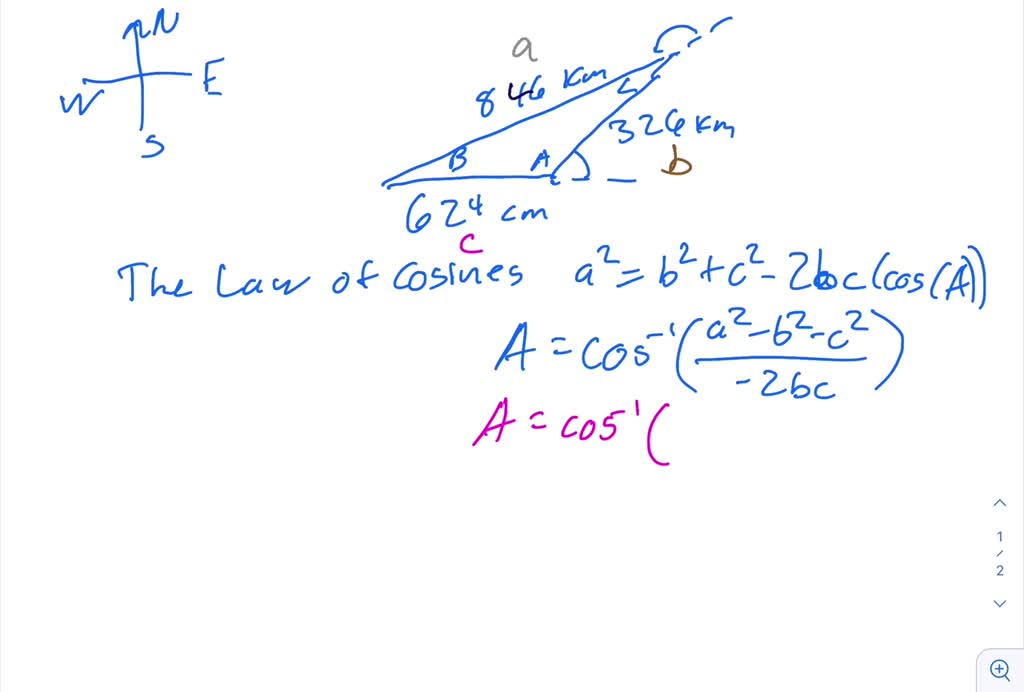 N
W E
S
a
846 Km
326 km
B A
b
624 cm
c
The Law of Cosines a² = b² + c² - 2bc(cos(A))
A = cos⁻¹((a² - b² - c²)/(-2bc))
A = cos⁻¹(
1
/
2